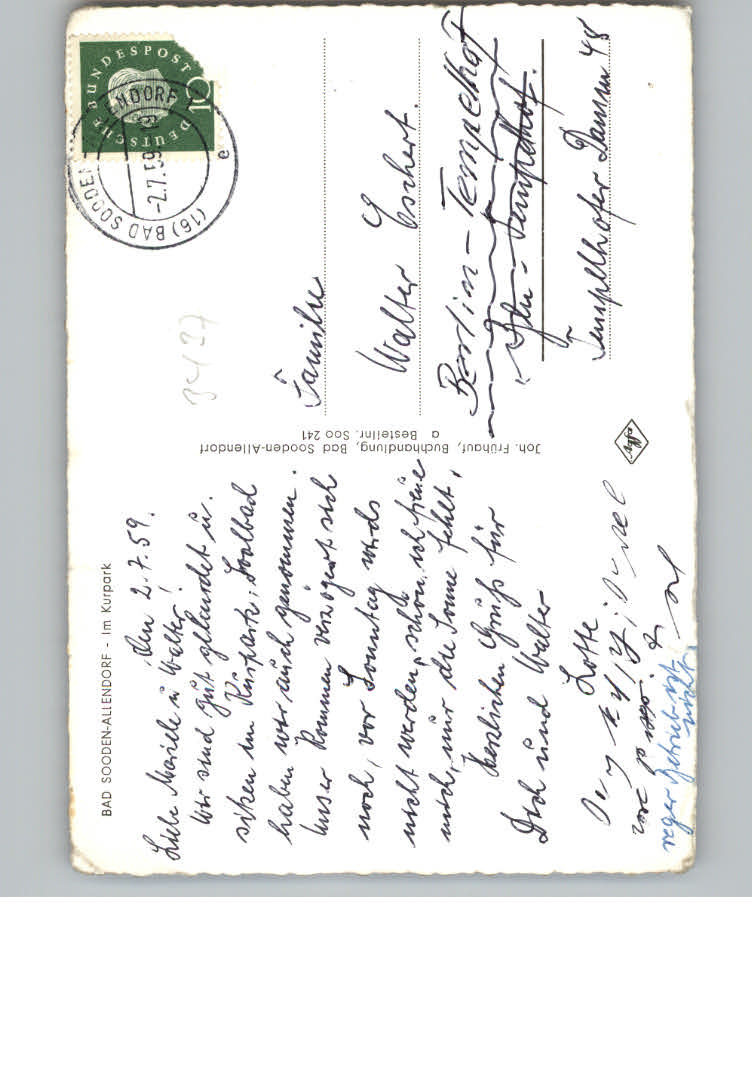 BAD SOODEN-ALLENDORF - Im Kurpark
den 2.7.59.
Liebe Mariele u Walter!
Wir sind gut gelandet u.
sitzen im Kurpark, Soolbad
haben wir auch genommen.
Unser Kommen verzögert sich
noch, vor Sonntag wirds
nicht werden, schön, ich freue
mich, nur die Sonne fehlt,
herzlichen Gruß für
Dich und Walter
Lotte
reger Betrieb ist
nicht
Joh. Frühauf, Buchhandlung, Bad Sooden-Allendorf
a Bestellnr. Soo 241
Agfa
DEUTSCHE BUNDESPOST
10
(16) BAD SOODEN-ALLENDORF
-2.7.59
e
3437
Familie
Walter Eschert.
Berlin-Tempelhof
Bln.-Tempelhof.
Tempelhofer Damm 48